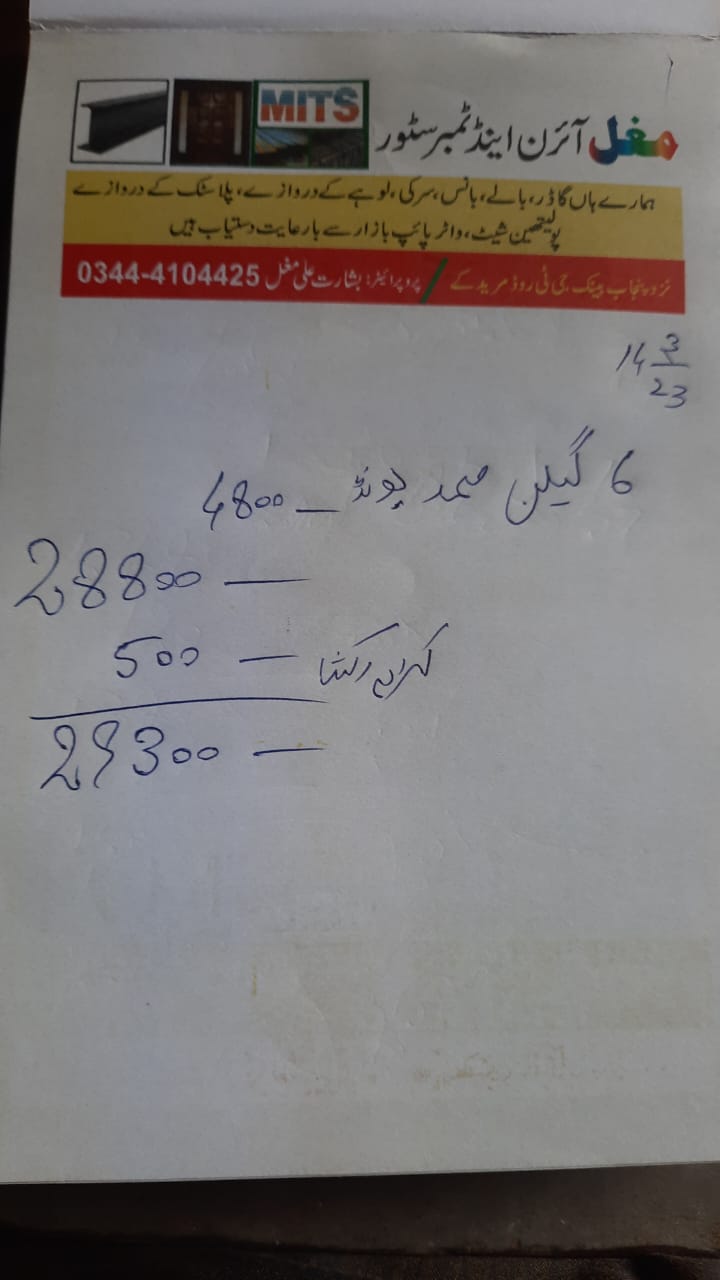 MITS
مغل آئرن اینڈ ٹمبر سٹور
ہمارے ہاں گاڈر، بالے، بانس، سرکی، لوہے کے دروازے، پلاسٹک کے دروازے
پولیتھین شیٹ، واٹر پائپ بازار سے بارعایت دستیاب ہیں
نزد پنجاب بینک جی ٹی روڈ مریدکے / پروپرائیٹر: بشارت علی مغل 0344-4104425
14 3/23
6 گیلن صمد بونڈ — 4800
28800 —
کرایہ رکشا — 500
29300 —